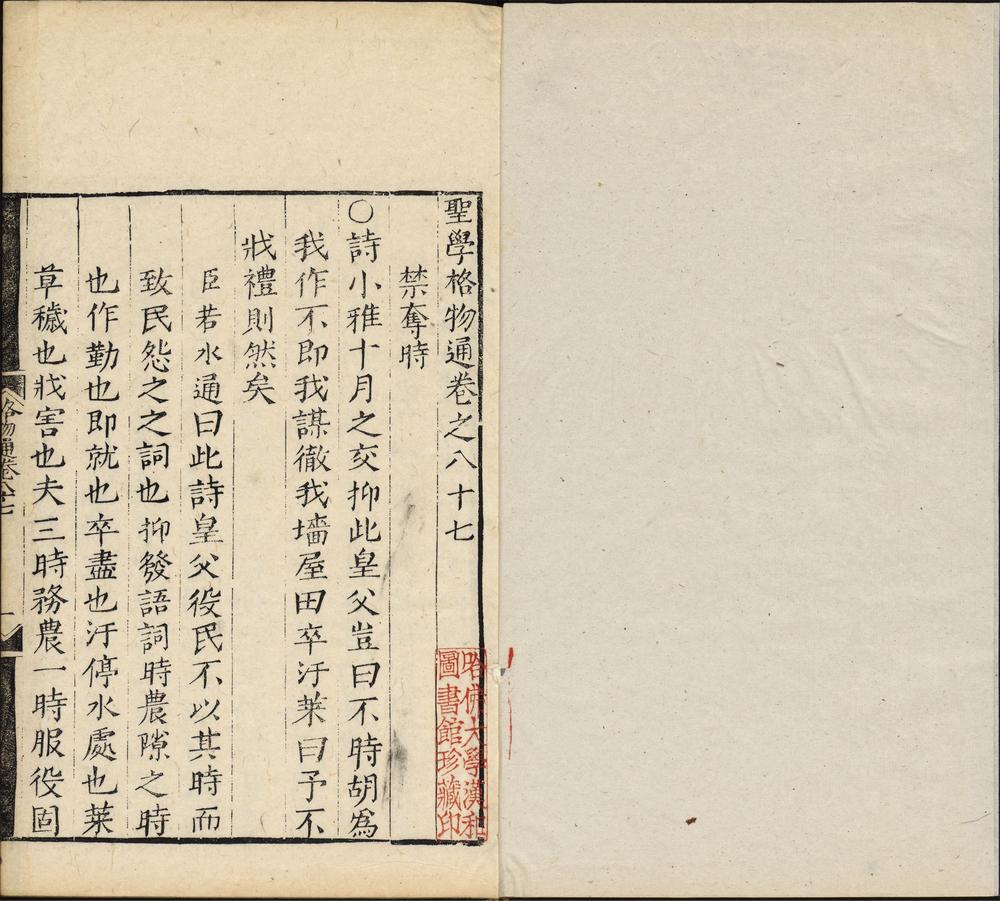 聖學格物通卷之八十七
禁奪時
○詩小雅十月之交抑此皇父豈曰不時胡爲
我作不即我謀徹我墻屋田卒汙萊曰予不
戕禮則然矣
臣若水通曰此詩皇父役民不以其時而
致民怨之之詞也抑發語詞時農隙之時
也作勤也即就也卒盡也汙停水處也萊
草穢也戕害也夫三時務農一時服役固
格物通卷八十七
一
哈佛大學漢和
圖書館珍藏印